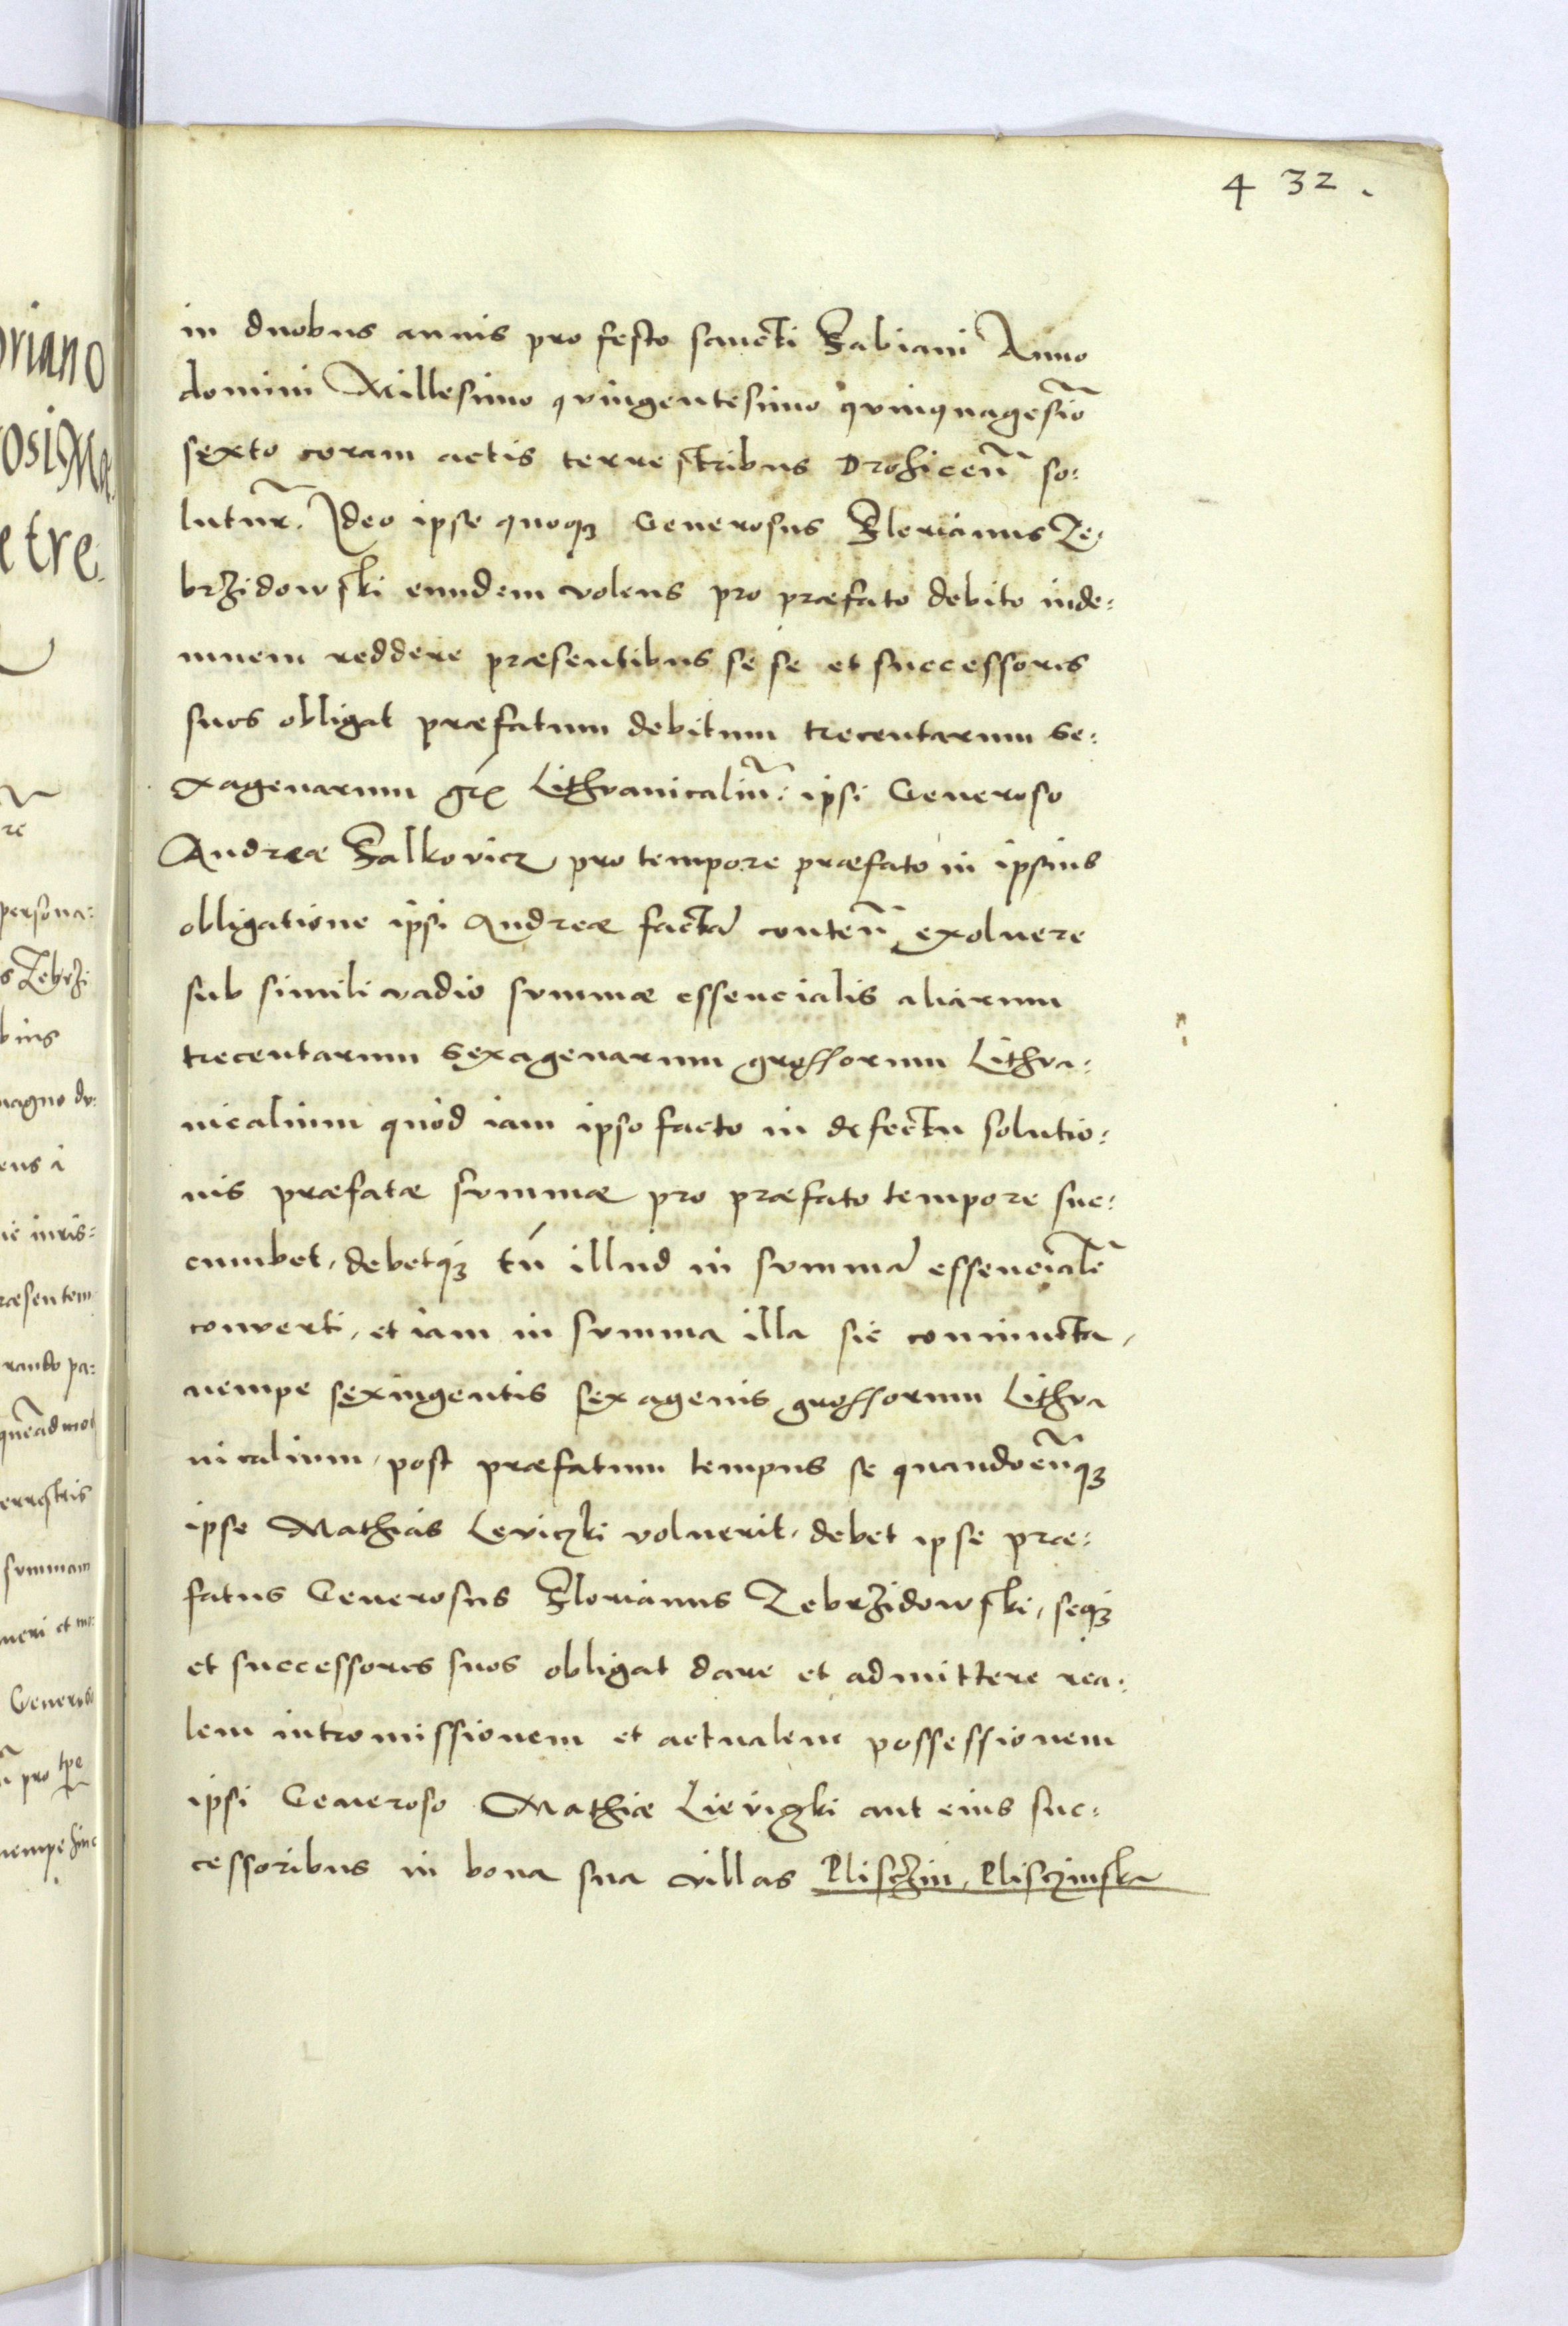 432.
in duobus annis pro festo sancti Fabiani Anno
domini Millesimo quingentesimo quinquagesīo
sexto coram actis terrestribus Drohiceñ so:
lutur̃. Ideo ipse quoqȝ Generosus Florianus Ze:
brzidowski eundem volens pro præfato debito inde:
mnem reddere præsentibus se se et successores
suos obligat præfatum debitum trecentarum se:
xagenarum gr̃ Lithvanicaliũ: ipsi Generoso
Andreæ Falkovicz pro tempore præfato in ipsius
obligatione ipsi Andreæ facta conteñ exoluere
sub simili vadio summæ essencialis aliarum
trecentarum sexagenarum grossorum Lithva:
nicalium quod iam ipso facto in defectu solutio:
nis præfatæ summæ pro præfato tempore suc:
cumbet, debetqȝ tñ illud in summā essencialē
converti, et iam in summa illa sic coniuncta,
nempe sexingentis sexagenis grossorum Lithva
nicalium, post præfatum tempus se quandocũqȝ
ipse Mathias Leviczki voluerit, debet ipse præ:
fatus Generosus Florianus Zebrzidowski, seqȝ
et successores suos obligat dare et admittere rea:
lem intromissionem et actualem possessionem
ipsi Generoso Mathiæ Lieviczki aut eius suc:
cessoribus in bona sua villas Plisczin, Plisczinska
oriano
osi Ma
e tre:
re
persona:
s Zebrzi
bius
magno du:
ens i
ic iuris:
ræsentem
rando pa:
quēadmo
errestris
summam
neri et
Generos
pro tpe
nempe hinc